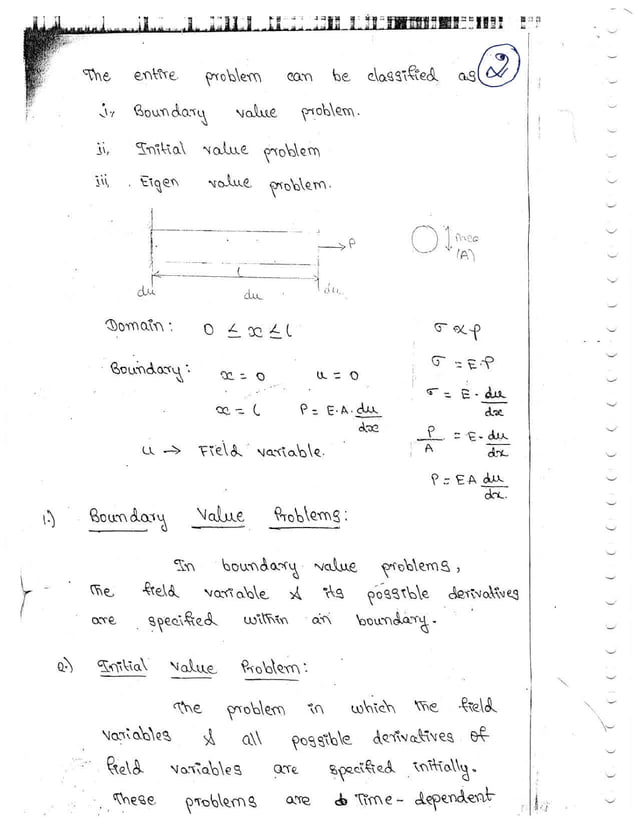 The entire problem can be classified as 2
i, Boundary value problem.
ii, Initial value problem
iii, Eigen value problem.
P
Area
(A)
l
du du du
Domain: 0 ≤ x ≤ l
σ ∝ p
Boundary: x = 0 u = 0
σ = E.P
x = l P = E.A. du/dx
σ = E. du/dx
u → Field variable.
P/A = E. du/dx
P = EA du/dx.
1.) Boundary Value Problems:
In boundary value problems,
The field variable & its possible derivatives
are specified within an boundary.
2.) Initial Value Problem:
The problem in which the field
variables & all possible derivatives of
field variables are specified initially.
These problems are Time-dependent